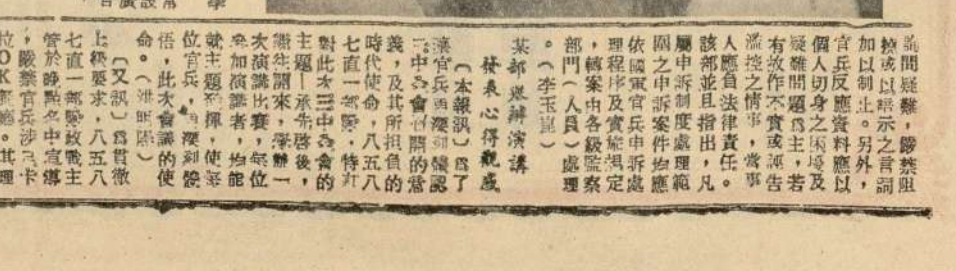 詢問疑難，嚴禁阻
撓或以暗示之言詞
加以制止。另外，
官兵反應資料應以
個人切身之困境及
疑難問題為主，若
有故作不實或誣告
濫控之情事，當事
人應負法律責任。
該部並且指出，凡
屬申訴制度處理範
圍之申訴案件均應
依國軍官兵申訴處
理程序及實施規定
，轉案由各級監察
部門（人員）處理
。（李玉
某部舉辦演講
發表心得觀感
〔本報訊〕為了
讓官兵更深刻體認
三中全會召開的意
義，及其所担負的
時代使命，八五八
七直一部隊，特訂
對此次三中全會的
主題—承先啓後，
繼往開來，舉辦一
次演講比賽，每位
參加演講者，均能
就主題發揮，使每
位官兵，更深刻體
悟，此次會議的使
命。（洪明
〔又訊〕為貫徹
上級要求，八五八
七直一部隊政戰主
管於晚點名中宣導
，嚴禁官兵涉足卡
拉OK